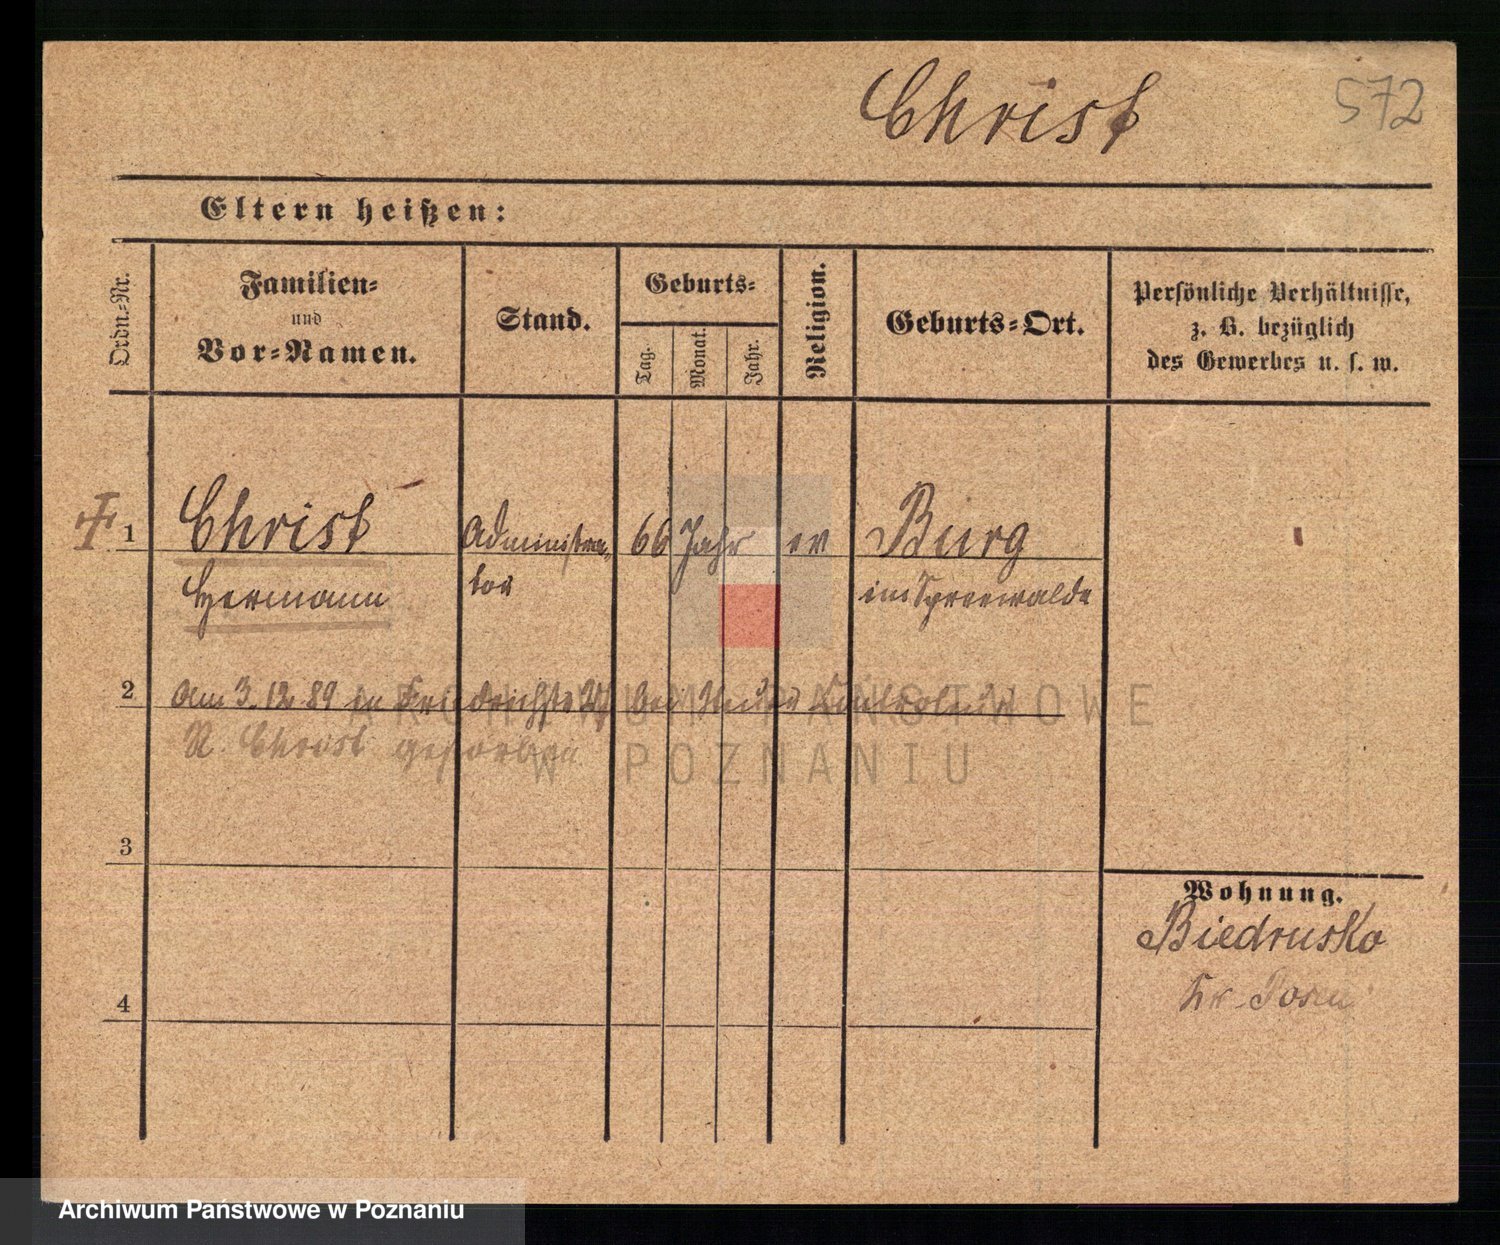 Christ
572
Eltern heißen:
Ordn.-Nr.
Familien-
und
Vor-Namen.
Stand.
Geburts-
Tag.
Monat.
Jahr.
Religion.
Geburts-Ort.
Persönliche Verhältnisse,
z. B. bezüglich
des Gewerbes u. s. w.
1 Christ Administra- 66 Jahr ev Burg
Hermann tor im Spreewalde
2 Am 3.12.89 in Friedrichstr bei
N. Christ gestorben
ARCHIWUM PAŃSTWOWE
W POZNANIU
3
Wohnung.
Biedrusko
Kr. Posen
4
Archiwum Państwowe w Poznaniu